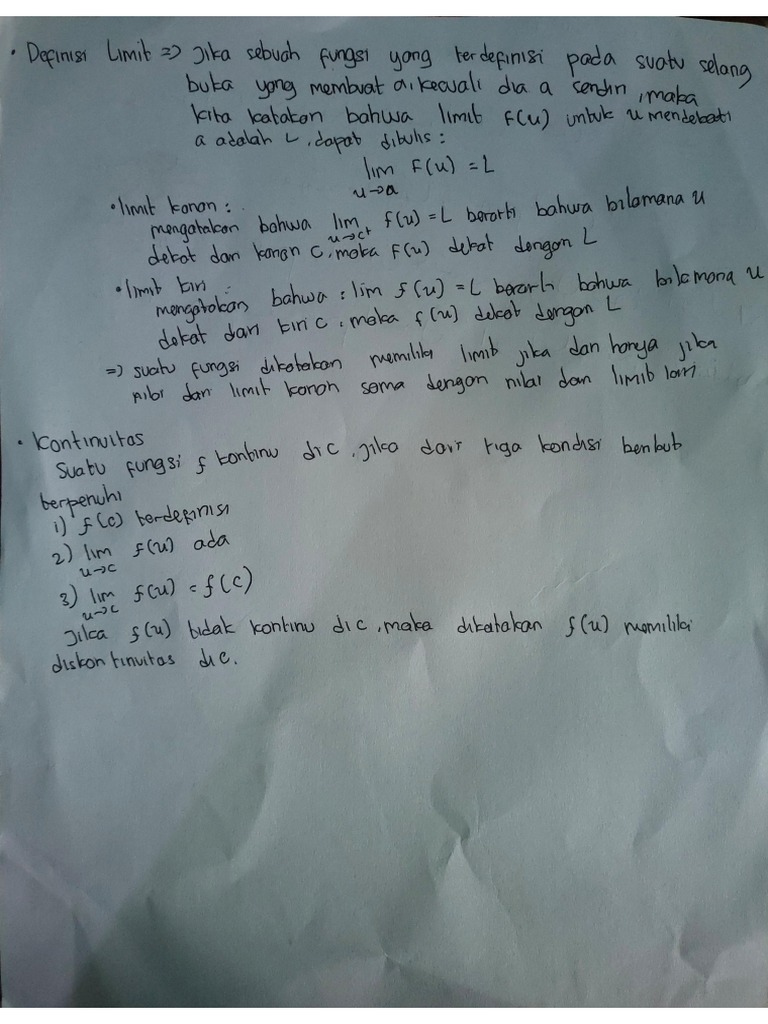 • Definisi Limit => Jika sebuah fungsi yang terdefinisi pada suatu selang
buka yang membuat a, kecuali dia a sendiri, maka
kita katakan bahwa limit f(u) untuk u mendekati
a adalah L, dapat ditulis :
lim f(u) = L
u→a
• limit kanan :
mengatakan bahwa lim f(u) = L berarti bahwa bilamana u
u→c+
dekat dari kanan c, maka f(u) dekat dengan L
• limit kiri :
mengatakan bahwa : lim f(u) = L berarti bahwa bilamana u
dekat dari kiri c, maka f(u) dekat dengan L
=> suatu fungsi dikatakan memiliki limit jika dan hanya jika
nilai dari limit kanan sama dengan nilai dari limit
• Kontinuitas
Suatu fungsi f kontinu di c, jika dari tiga kondisi berikut
terpenuhi
1) f(c) terdefinisi
2) lim f(u) ada
u→c
3) lim f(u) = f(c)
u→c
Jika f(u) tidak kontinu di c, maka dikatakan f(u) memiliki
diskontinuitas di c.